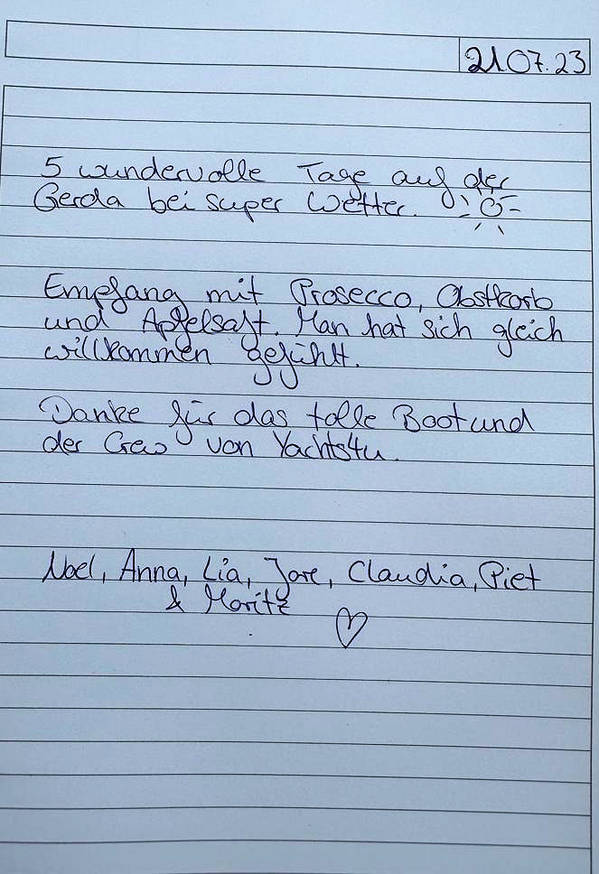 21.07.23
5 wundervolle Tage auf der
Gerda bei super Wetter.
Empfang mit Prosecco, Obstkorb
und Apfelsaft. Man hat sich gleich
willkommen gefühlt.
Danke für das tolle Boot und
der Crew von Yachts4u.
Noel, Anna, Lia, Jore, Claudia, Piet
& Moritz